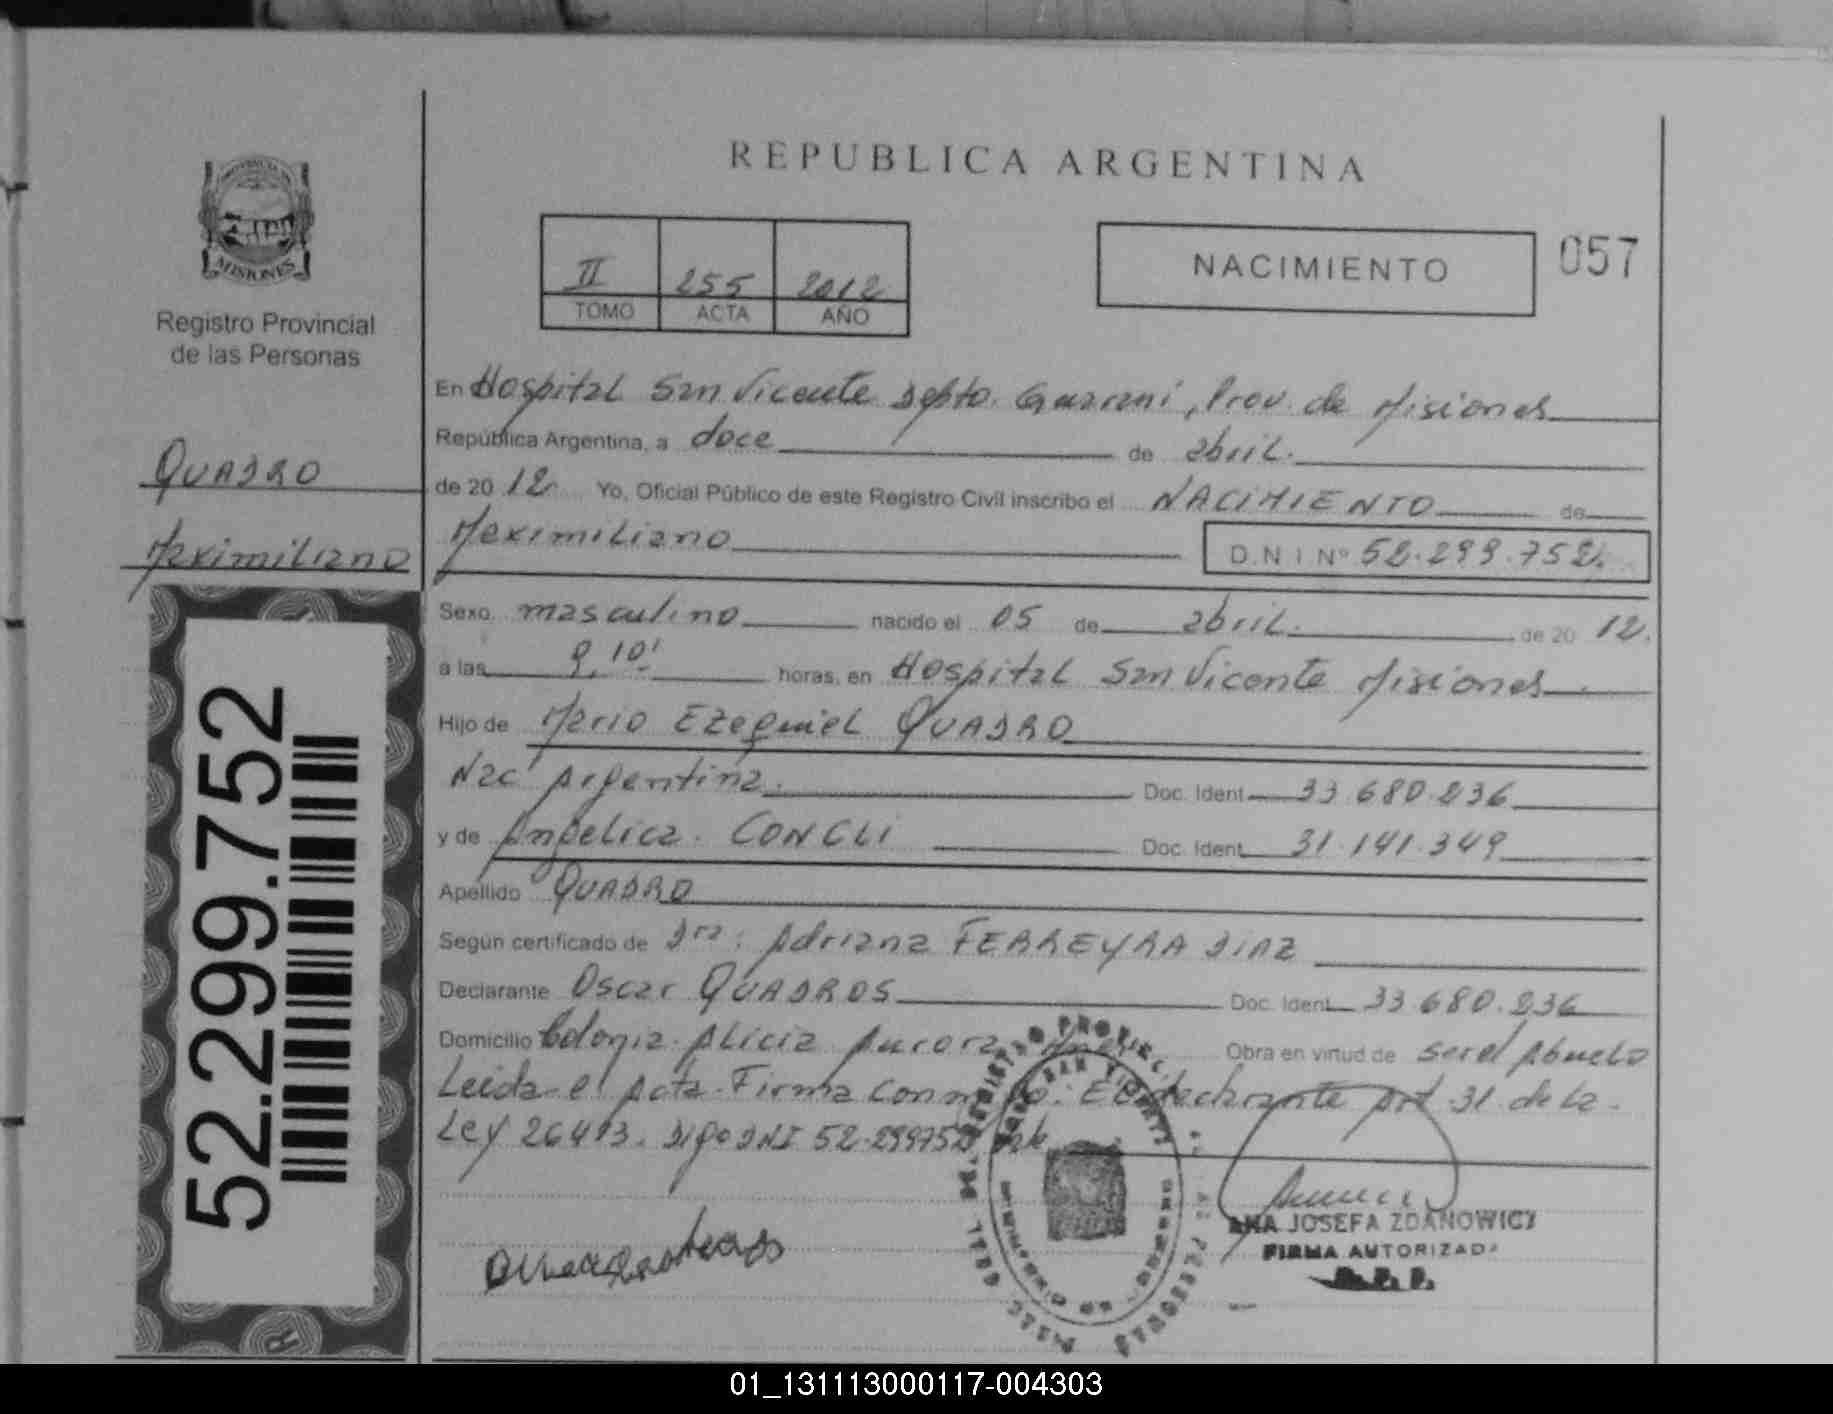 REPUBLICA ARGENTINA
MISIONES
Registro Provincial
de las Personas
II 255 2012
TOMO ACTA AÑO
NACIMIENTO
057
QUADRO
Maximiliano
52.299.752
En Hospital San Vicente Depto. Guarani, Prov. de Misiones
República Argentina, a doce de abril.
de 20 12 Yo, Oficial Público de este Registro Civil inscribo el NACIMIENTO de
Maximiliano D.N.I Nº 52.299.752.
Sexo masculino nacido el 05 de abril. de 20 12.
a las 9,10' horas, en Hospital San Vicente Misiones
Hijo de Mario Ezequiel QUADRO
Nac Argentina. Doc. Ident 33.680.236
y de Angelica. CONCLI Doc. Ident 31.141.349
Apellido QUADRO
Según certificado de Dra: Adriana FERREYRA DIAZ
Declarante Oscar QUADROS Doc. Ident 33.680.236
Domicilio Colonia Alicia Aurora Obra en virtud de ser el Abuelo
Leida el Acta Firma conmigo. El declarante Art. 31 de la
Ley 26413. Digo DNI 52.299752
ANA JOSEFA ZDANOWICZ
FIRMA AUTORIZADA
R. P. P.
R
01_131113000117-004303